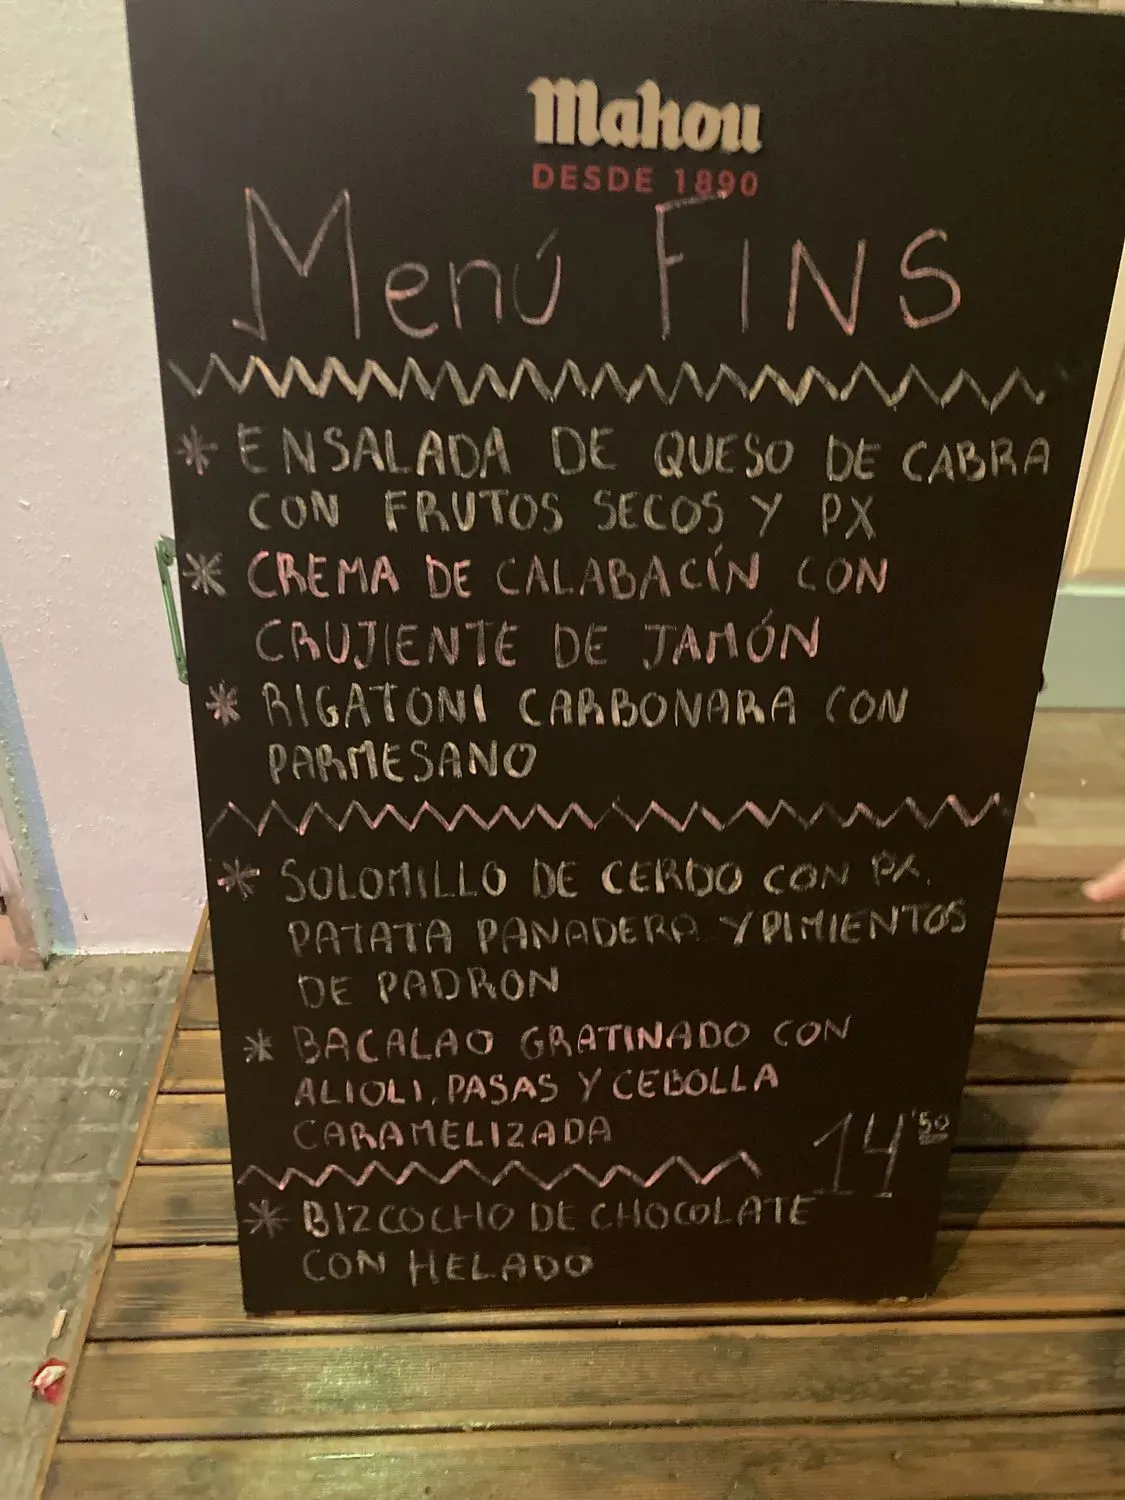 Mahou
DESDE 1890
Menú FINS
* ENSALADA DE QUESO DE CABRA
CON FRUTOS SECOS Y PX
* CREMA DE CALABACÍN CON
CRUJIENTE DE JAMÓN
* RIGATONI CARBONARA CON
PARMESANO
* SOLOMILLO DE CERDO CON PX,
PATATA PANADERA Y PIMIENTOS
DE PADRON
* BACALAO GRATINADO CON
ALIOLI, PASAS Y CEBOLLA
CARAMELIZADA
14'50
* BIZCOCHO DE CHOCOLATE
CON HELADO